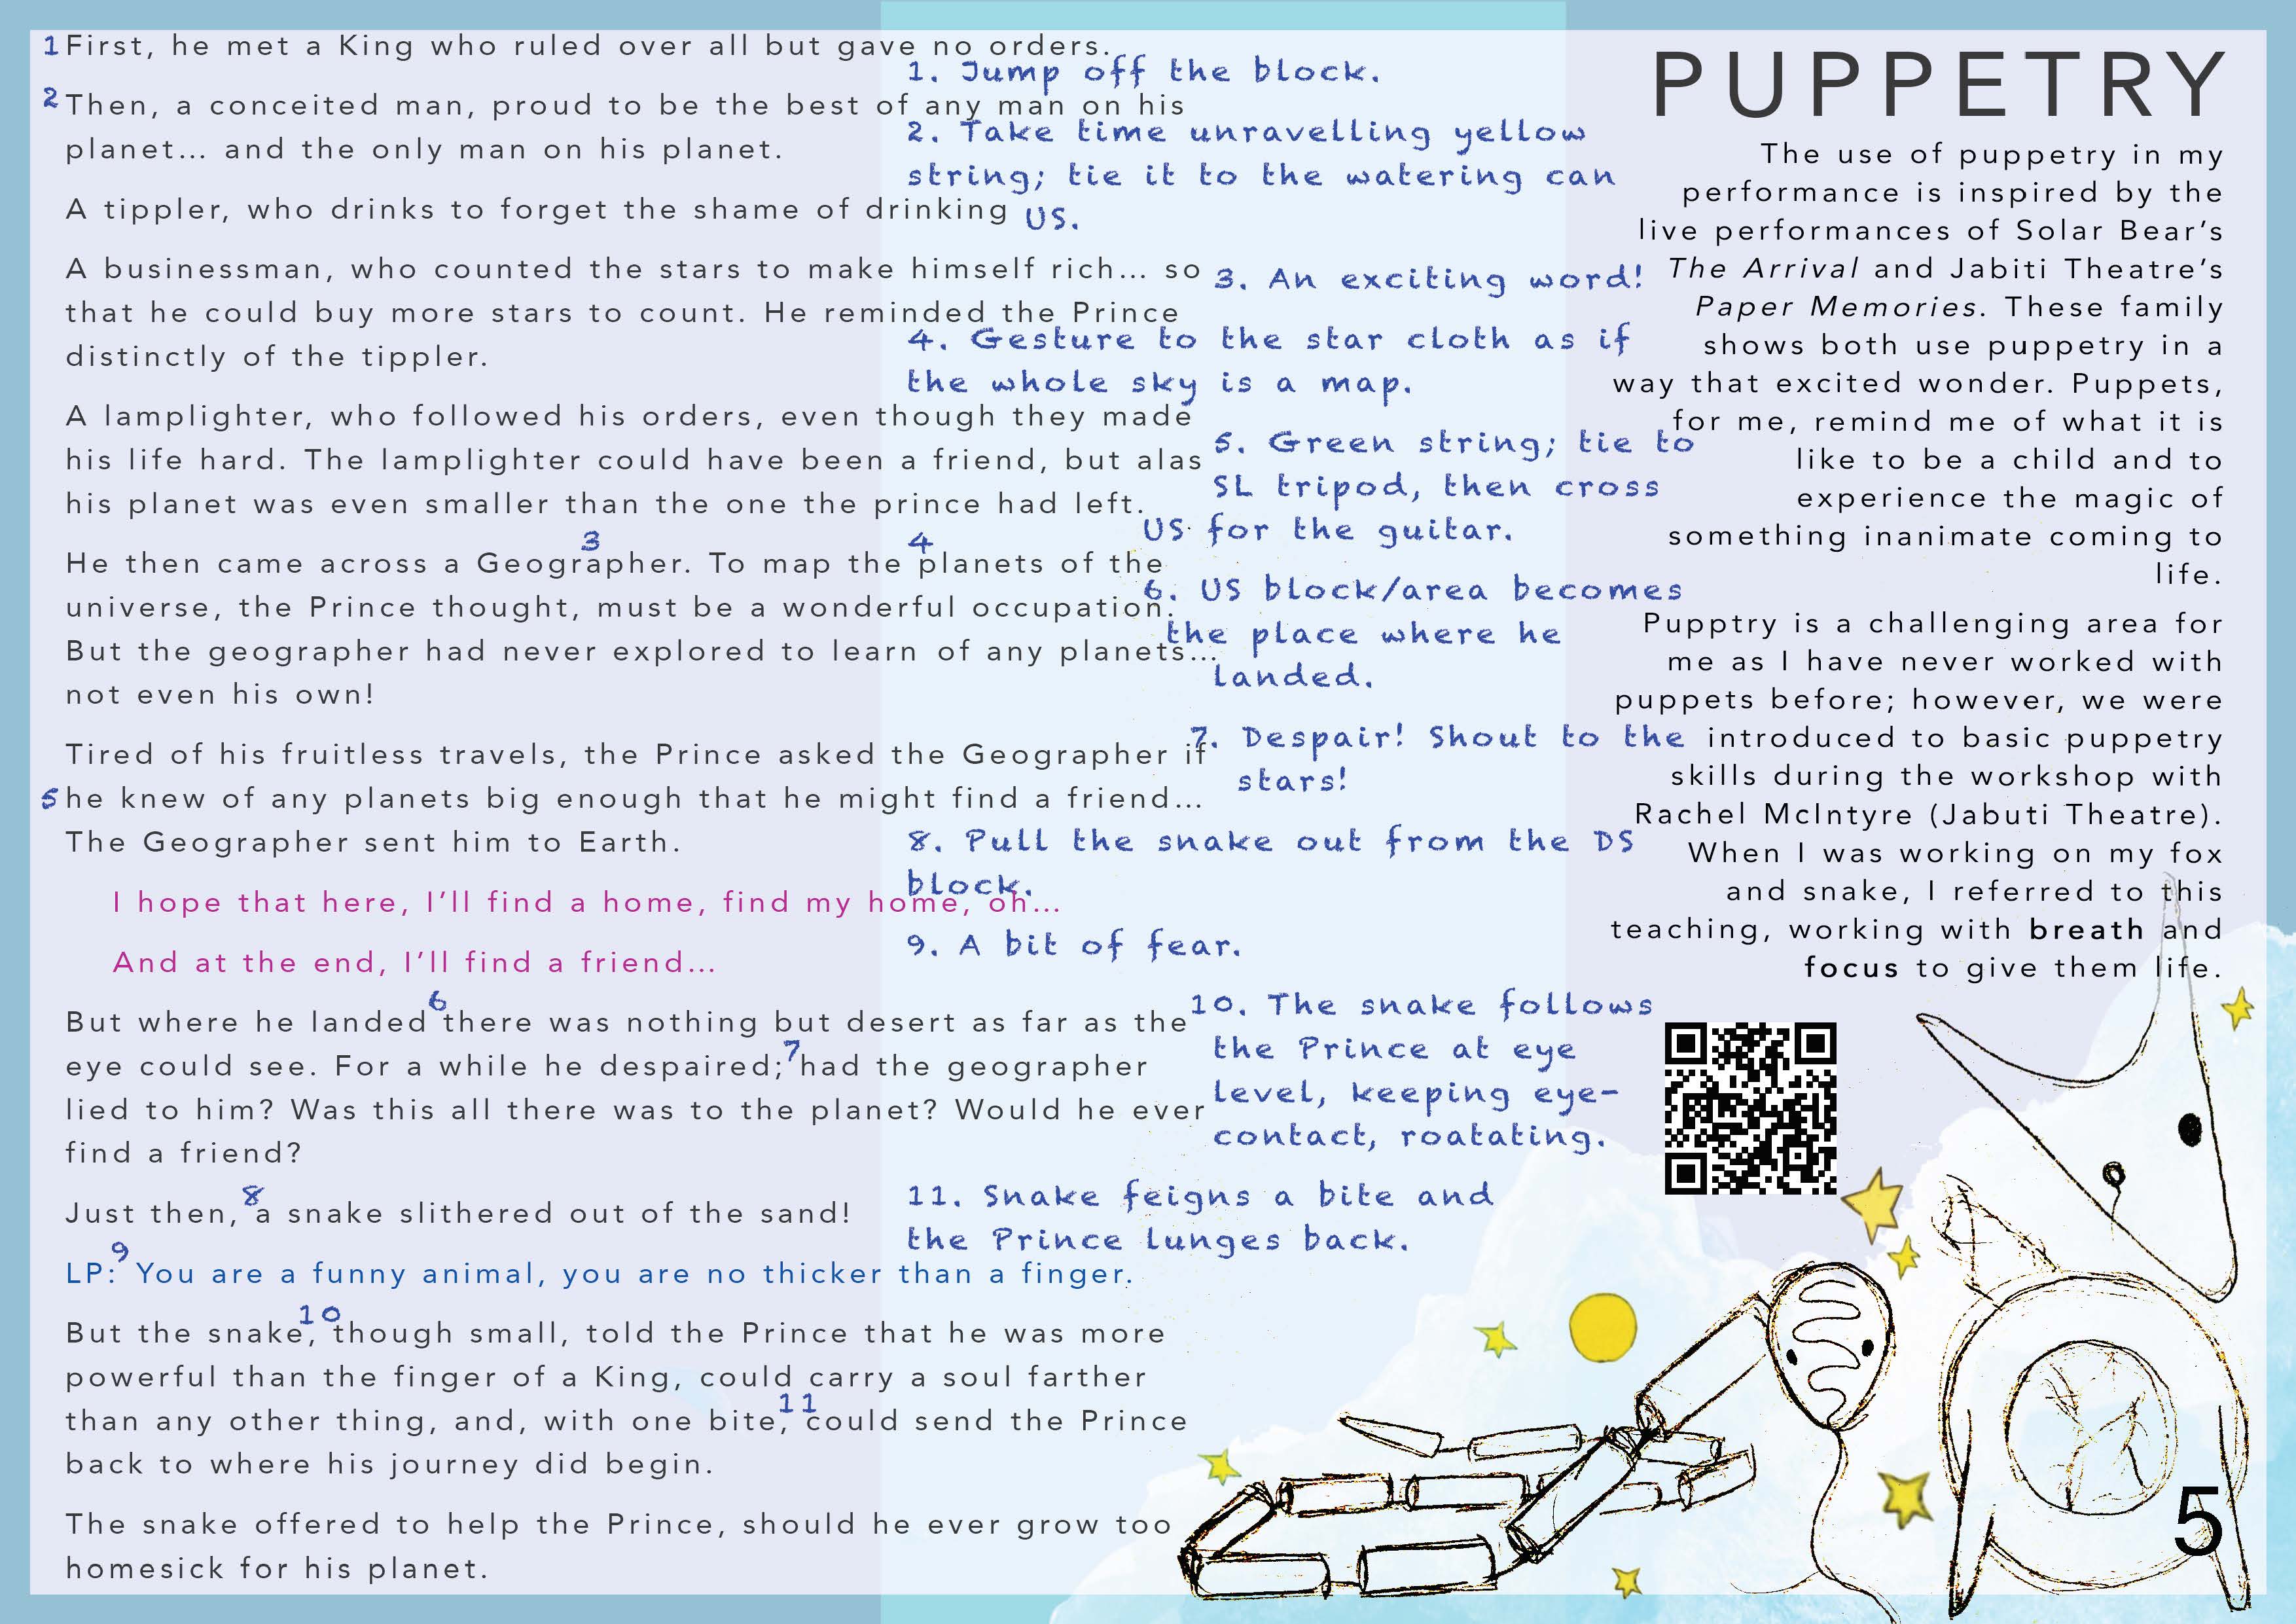 1 First, he met a King who ruled over all but gave no orders.
2 Then, a conceited man, proud to be the best of any man on his
planet… and the only man on his planet.
A tippler, who drinks to forget the shame of drinking
A businessman, who counted the stars to make himself rich… so
that he could buy more stars to count. He reminded the Prince
distinctly of the tippler.
A lamplighter, who followed his orders, even though they made
his life hard. The lamplighter could have been a friend, but alas
his planet was even smaller than the one the prince had left.
3 4
He then came across a Geographer. To map the planets of the
universe, the Prince thought, must be a wonderful occupation.
But the geographer had never explored to learn of any planets…
not even his own!
Tired of his fruitless travels, the Prince asked the Geographer if
5 he knew of any planets big enough that he might find a friend…
The Geographer sent him to Earth.
I hope that here, I'll find a home, find my home, oh…
And at the end, I'll find a friend…
6
But where he landed there was nothing but desert as far as the
7
eye could see. For a while he despaired; had the geographer
lied to him? Was this all there was to the planet? Would he ever
find a friend?
8
Just then, a snake slithered out of the sand!
9
LP: You are a funny animal, you are no thicker than a finger.
10
But the snake, though small, told the Prince that he was more
powerful than the finger of a King, could carry a soul farther
11
than any other thing, and, with one bite, could send the Prince
back to where his journey did begin.
The snake offered to help the Prince, should he ever grow too
homesick for his planet.
1. Jump off the block.
2. Take time unravelling yellow
string; tie it to the watering can
US.
3. An exciting word!
4. Gesture to the star cloth as if
the whole sky is a map.
5. Green string; tie to
SL tripod, then cross
US for the guitar.
6. US block/area becomes
the place where he
landed.
7. Despair! Shout to the
stars!
8. Pull the snake out from the DS
block.
9. A bit of fear.
10. The snake follows
the Prince at eye
level, keeping eye-
contact, roatating.
11. Snake feigns a bite and
the Prince lunges back.
PUPPETRY
The use of puppetry in my
performance is inspired by the
live performances of Solar Bear's
The Arrival and Jabiti Theatre's
Paper Memories. These family
shows both use puppetry in a
way that excited wonder. Puppets,
for me, remind me of what it is
like to be a child and to
experience the magic of
something inanimate coming to
life.
Pupptry is a challenging area for
me as I have never worked with
puppets before; however, we were
introduced to basic puppetry
skills during the workshop with
Rachel McIntyre (Jabuti Theatre).
When I was working on my fox
and snake, I referred to this
teaching, working with breath and
focus to give them life.
5